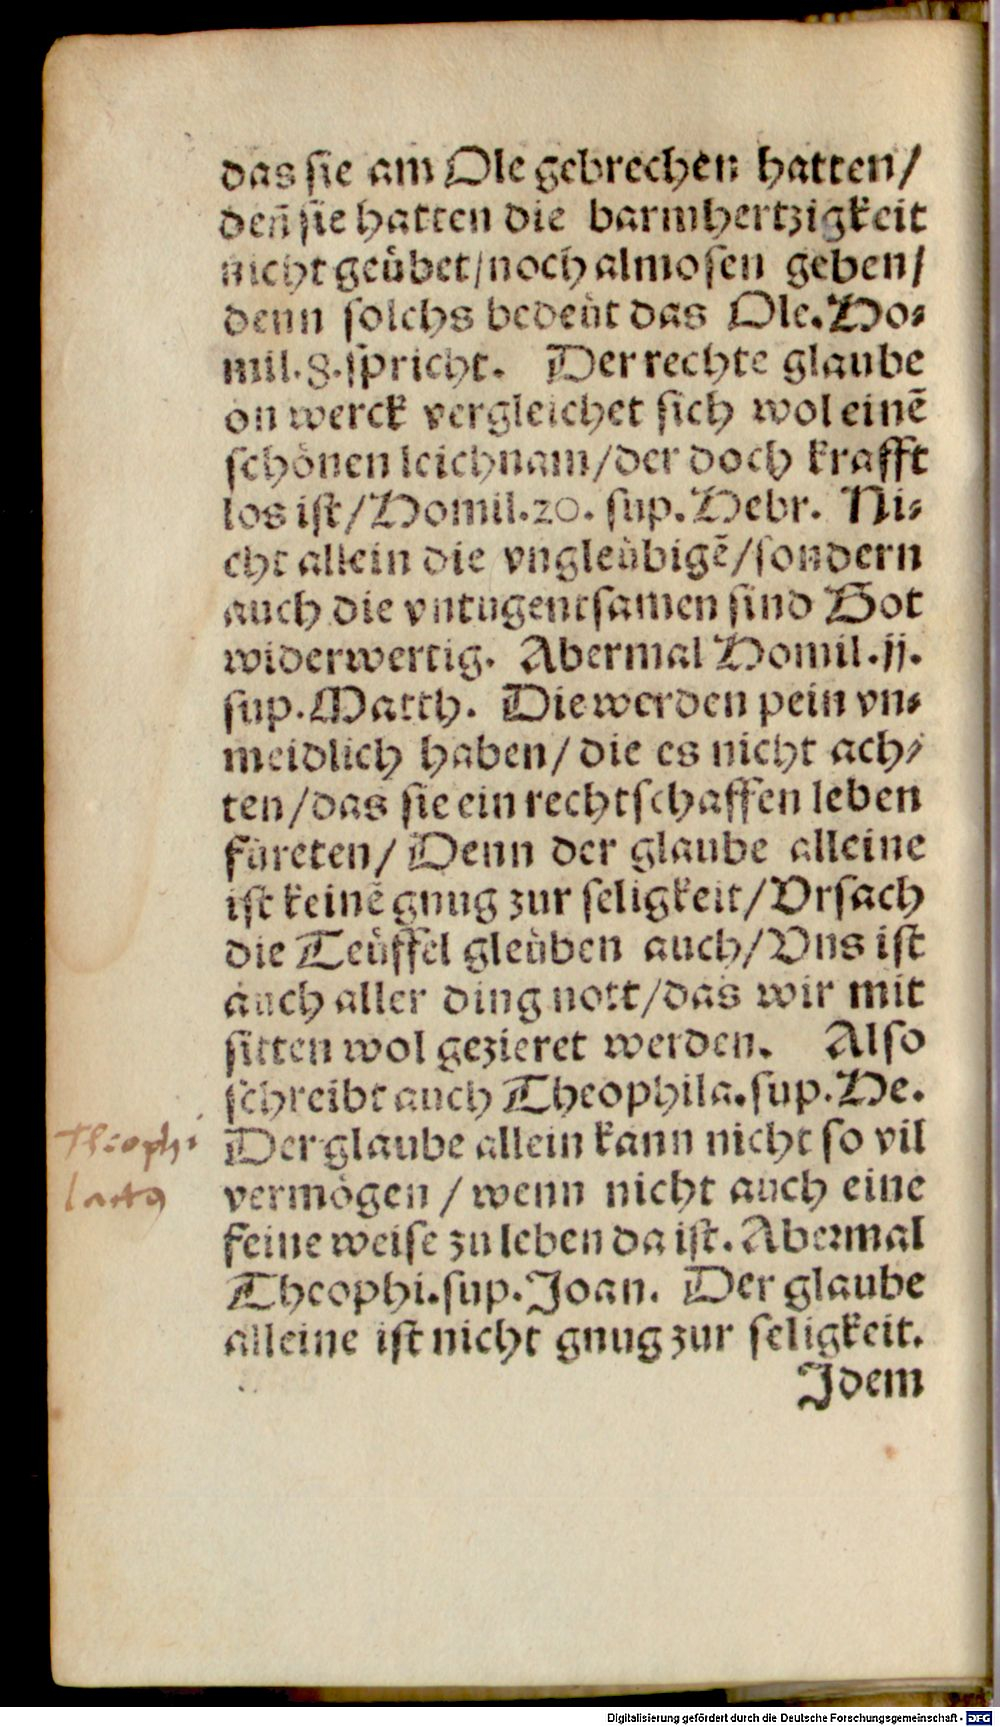 das sie am Ole gebrechen hatten/
deñ sie hatten die barmhertzigkeit
nicht geübet/noch almosen geben/
denn solchs bedeüt das Ole. Ho⸗
mil. 8. spricht. Der rechte glaube
on werck vergleichet sich wol einē
schönen leichnam/der doch krafft
los ist/Homil. 20. sup. Hebr. Ni⸗
cht allein die vngleübigē/sondern
auch die vntugentsamen sind Got
widerwertig. Abermal Homil. jj.
sup. Matth. Die werden pein vn⸗
meidlich haben/ die es nicht ach⸗
ten/das sie ein rechtschaffen leben
füreten/ Denn der glaube alleine
ist keinē gnug zur seligkeit/Vrsach
die Teüffel gleüben auch/Vns ist
auch aller ding nott/das wir mit
sitten wol gezieret werden. Also
schreibt auch Theophila. sup. He.
Theophi
Der glaube allein kann nicht so vil
lactꝰ
vermögen / wenn nicht auch eine
feine weise zu leben da ist. Abermal
Theophi. sup. Joan. Der glaube
alleine ist nicht gnug zur seligkeit.
Idem
Digitalisierung gefördert durch die Deutsche Forschungsgemeinschaft - DFG